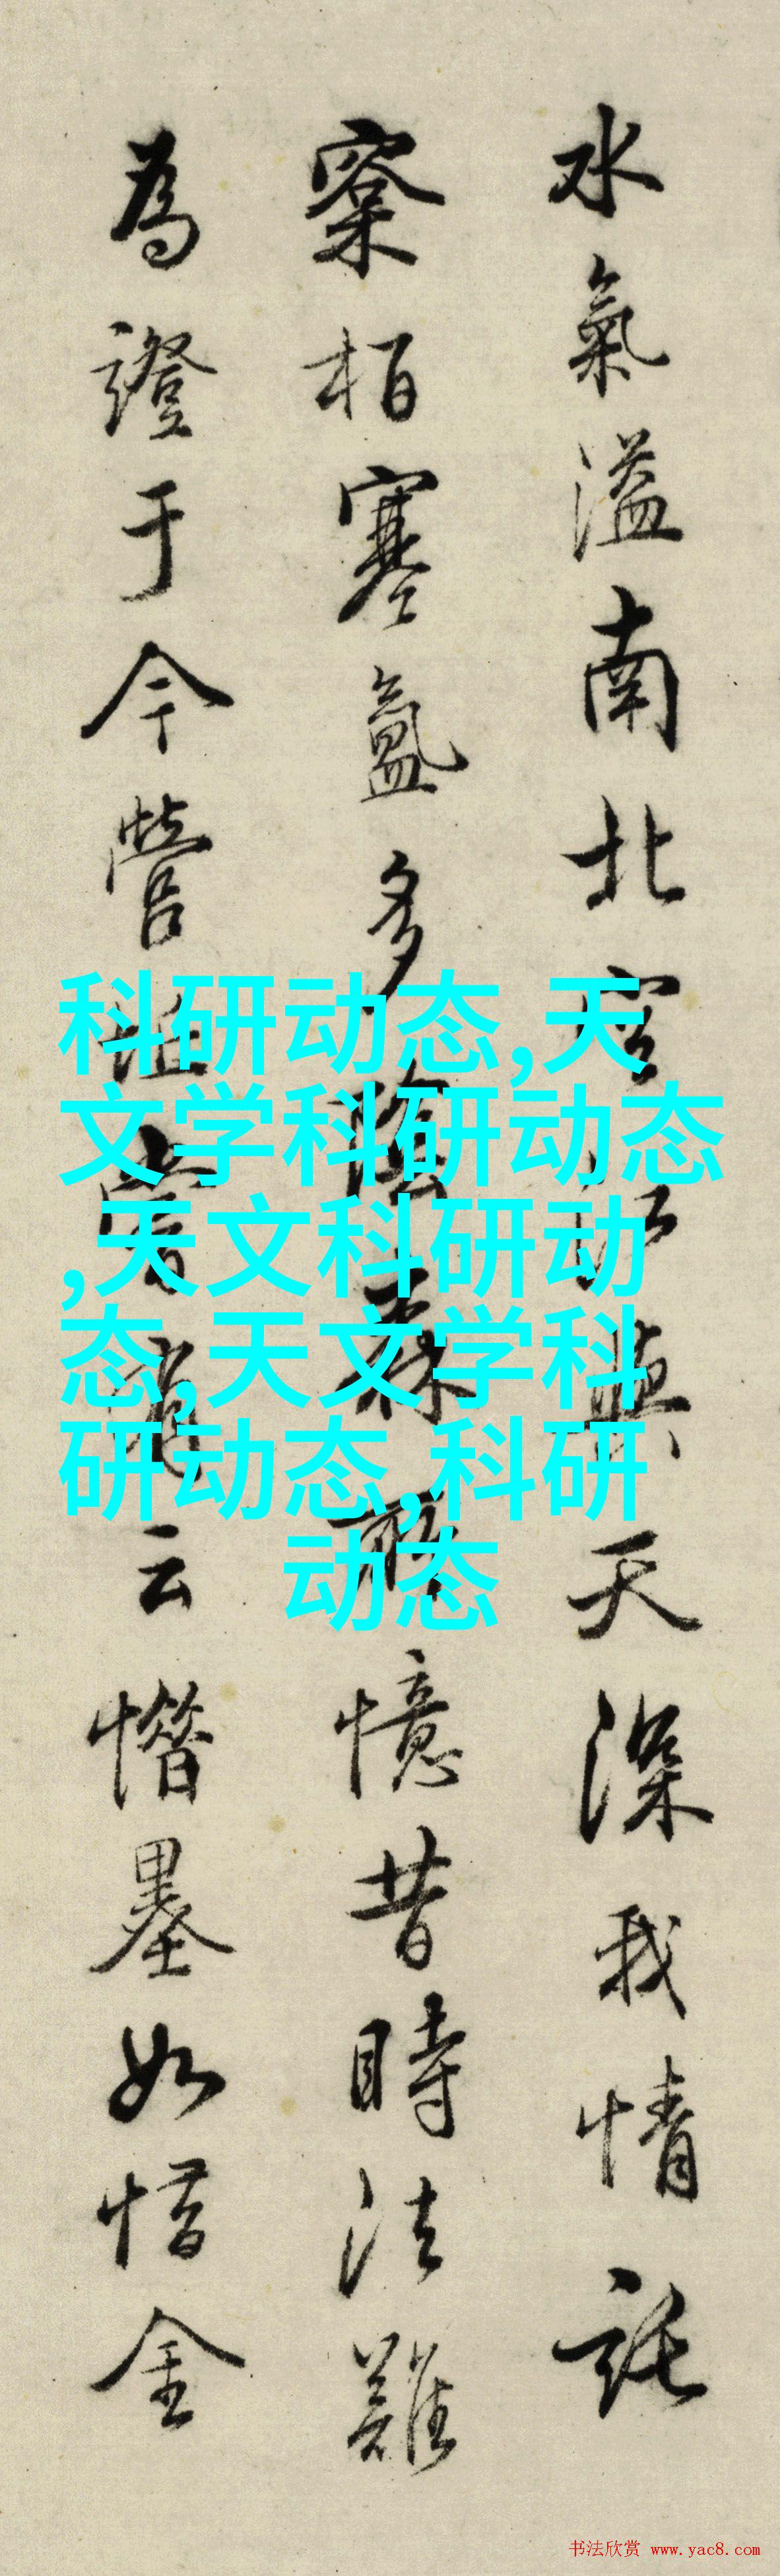 水氣溢南北空江與天深我情託
寀柏寒氳多陰森 憶昔時法難
為證于今營 云憯墨如惜金
科研动态,天
文学科研动态
,天文科研动
态,天文学科
研动态,科研
动态
书法欣赏 www.yac8.com